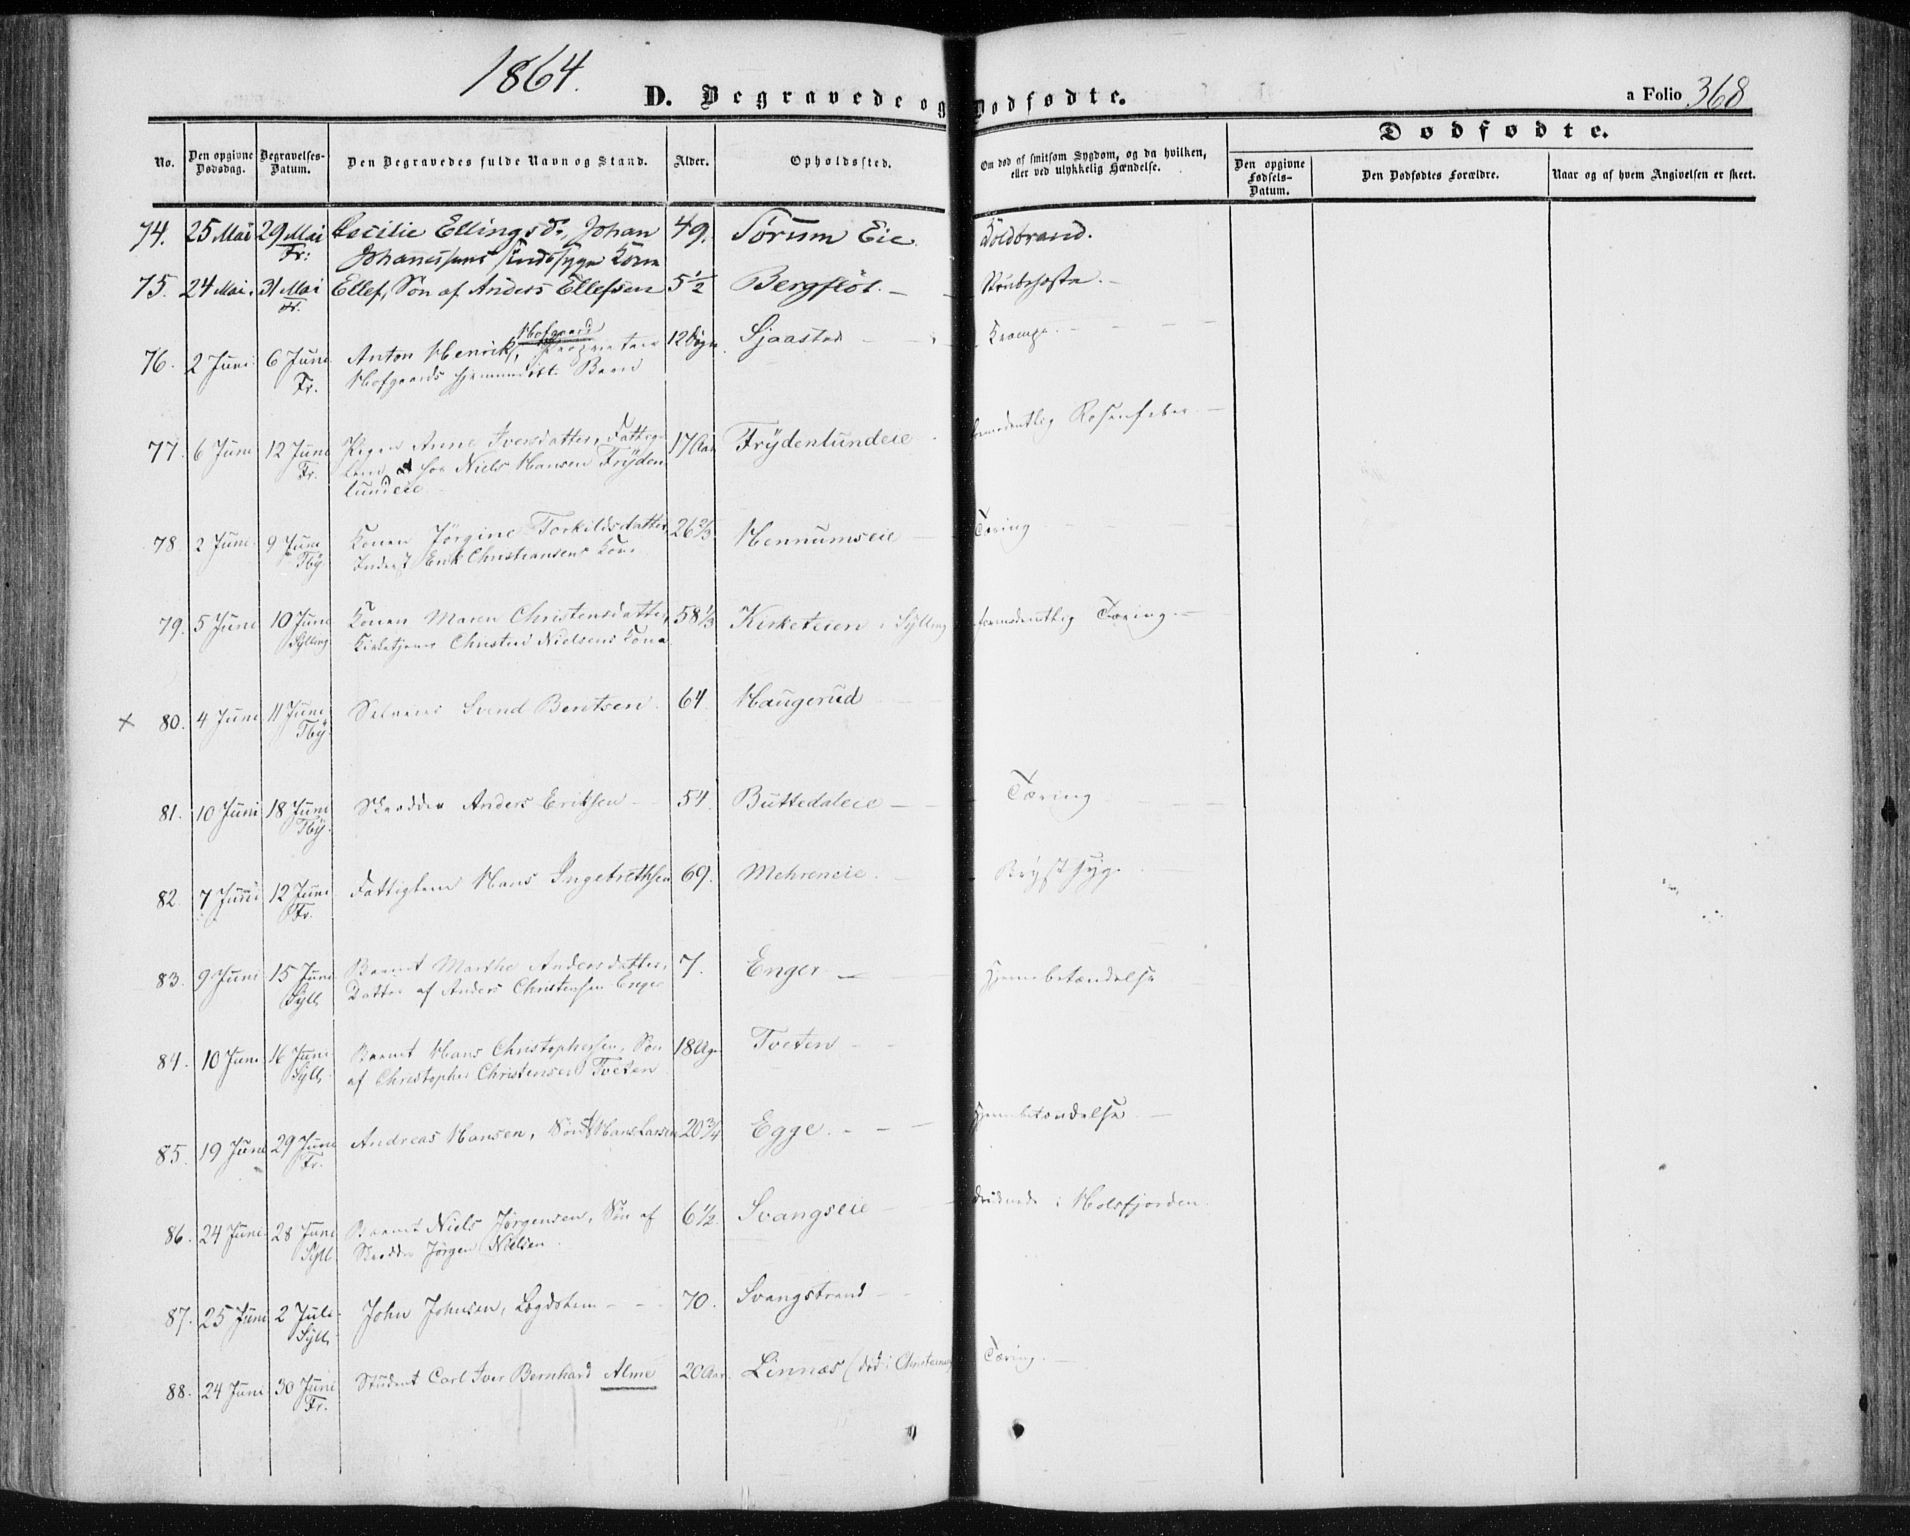 1864.
D. Begravede og Dødfødte.
a Folio 368
No.
Den opgivne Dødsdag.
Begravelses-Datum.
Den Begravedes fulde Navn og Stand.
Alder.
Opholdssted.
Om død af smitsom Sygdom, og da hvilken,
eller ved ulykkelig Hændelse.
Dødfødte.
Den opgivne Fødsels-Datum.
Den Dødfødtes Forældre.
Naar og af hvem Angivelsen er skeet.
74. 25 Mai 29 Mai Cecilie Ellingsdr, Johan 49. Sørum Eie Koldbrand.
Fr. Johannesens Kone
75. 24 Mai. 31 Mai Ellef, Søn af Anders Ellefsen 5½ Bergfløt. Strubehoste.
Fr.
Hofgaard
76. 2 Juni 6 Juni Anton Henrik, Proprietair 12 Dage Sjaastad Krampe
Fr. Hofgaards hjemmedøbt Barn
77. 6 Juni 12 Juni Pigen Anne Iversdatter, Fattig- 17 Aar Frydenlundeie formodentlig Rosenfeber
Fr. lem hos Niels Hansen Fryden
lundeie
78. 2 Juni 9 Juni Konen Jørgine Torkildsdatter, 26⅔ Hennumseie Tæring
Tby. Inderst Erik Christiansens Kone
79. 5 Juni 10 Juni Konen Maren Christensdatter, 58⅓ Kirketeien i Sylling formodentlig Tæring.
Sylling Kirketjener Christen Nielsens Kone
+ 80. 4 Juni 11 Juni Selveier Svend Berntsen. 64. Haugerud
Tby.
81. 10 Juni 18 Juni Skrædder Anders Eriksen 54. Buttedaleie Tæring
Tby.
82. 7 Juni 12 Juni Fattiglem Hans Ingebrethsen 69. Mehreneie. Brystsyge
Fr.
83. 9 Juni 15 Juni Barnet Marthe Andersdatter, 7. Enger Hjernebetændelse
Syll. Datter af Anders Christensen Enger
84. 10 Juni 16 Juni Barnet Hans Christophersen, Søn 18 Uger Tveten
Syll. af Christopher Christensen Tveten
85. 19 Juni 29 Juni Andreas Hansen, Søn af Hans Larsen 20¾ Egge. Hjernebetændelse
Fr.
86. 24 Juni 28 Juni Barnet Niels Jørgensen, Søn af 6½ Svangseie druknede i Holsfjorden.
Syll Skrædder Jørgen Nielsen
87. 25 Juni 2 Juli John Johnsen, Lægdslem 70. Svangstrand
Syll.
88. 24 Juni 30 Juni Student Carl Iver Bernhard Alme 20 Aar. Linnæs (død i Christiania Tæring.
Fr.